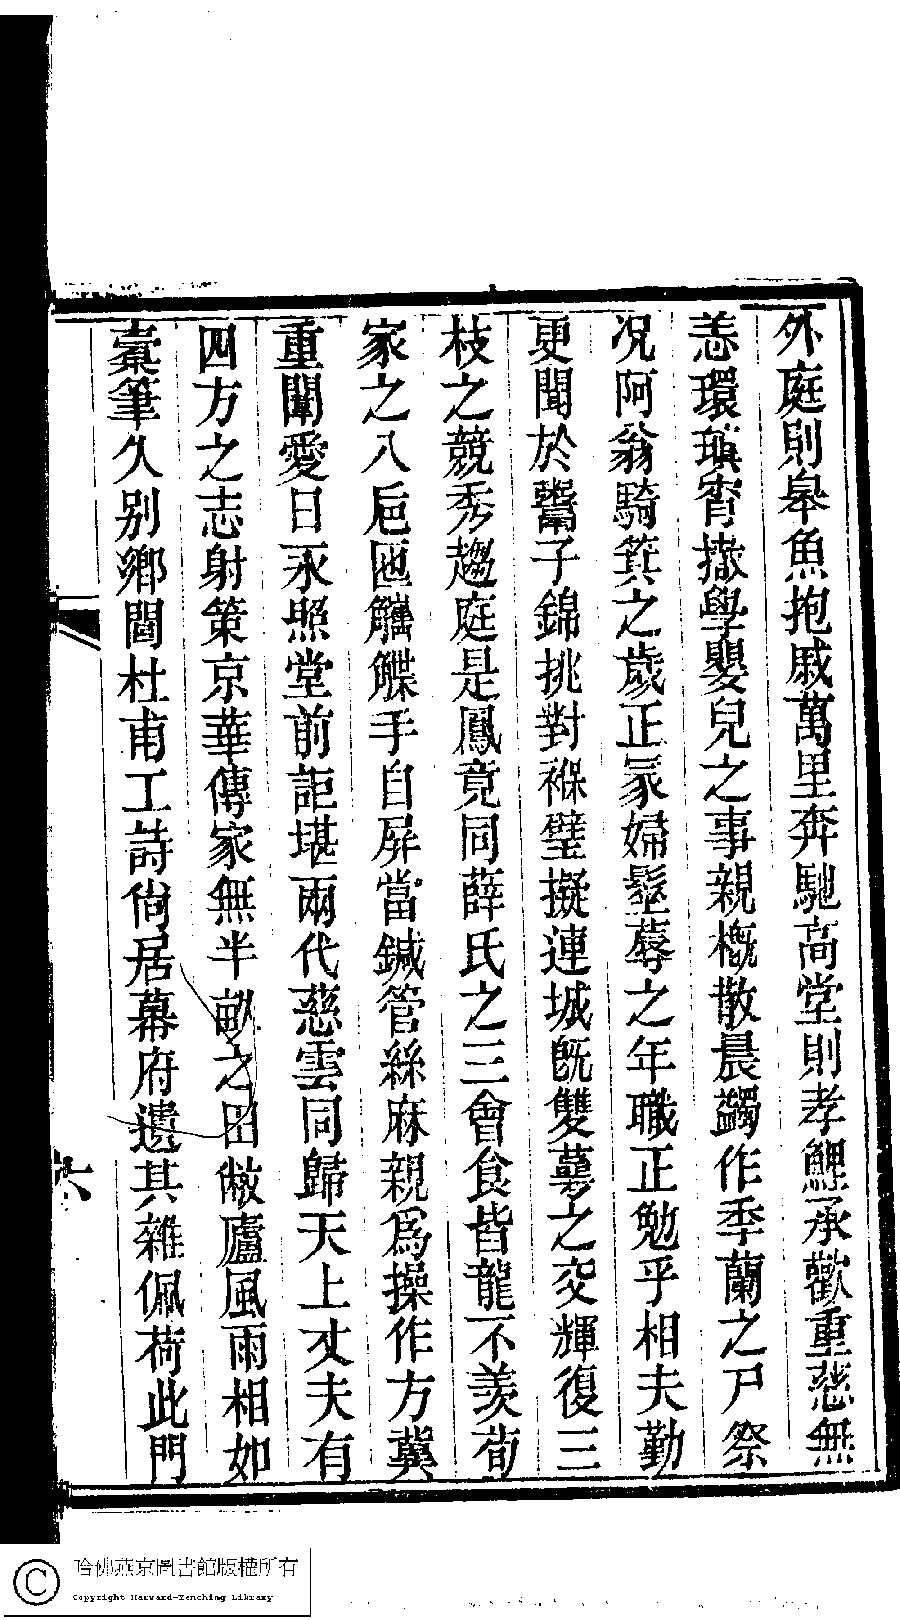 外庭則皋魚抱戚萬里奔馳高堂則孝鯉承歡重慈無
恙環瑱宵撤學嬰兒之事親櫛散晨蠲作季蘭之尸祭
况阿翁騎箕之歲正冢婦髽蓐之年職正勉乎相夫勤
更聞於鬻子錦挑對褓璧擬連城旣雙萼之交輝復三
枝之競秀趨庭是鳳竟同薛氏之三會食皆龍不羨荀
家之八巵匜觿鞢手自屏當鍼管絲麻親爲操作方冀
重闈愛日永照堂前詎堪兩代慈雲同歸天上丈夫有
四方之志射策京華傳家無半畝之田敝廬風雨相如
橐筆久別鄉閭杜甫工詩尙居幕府遺其雜佩荷此門
六
哈佛燕京圖書館版權所有
Copyright Harvard-Yenching Library